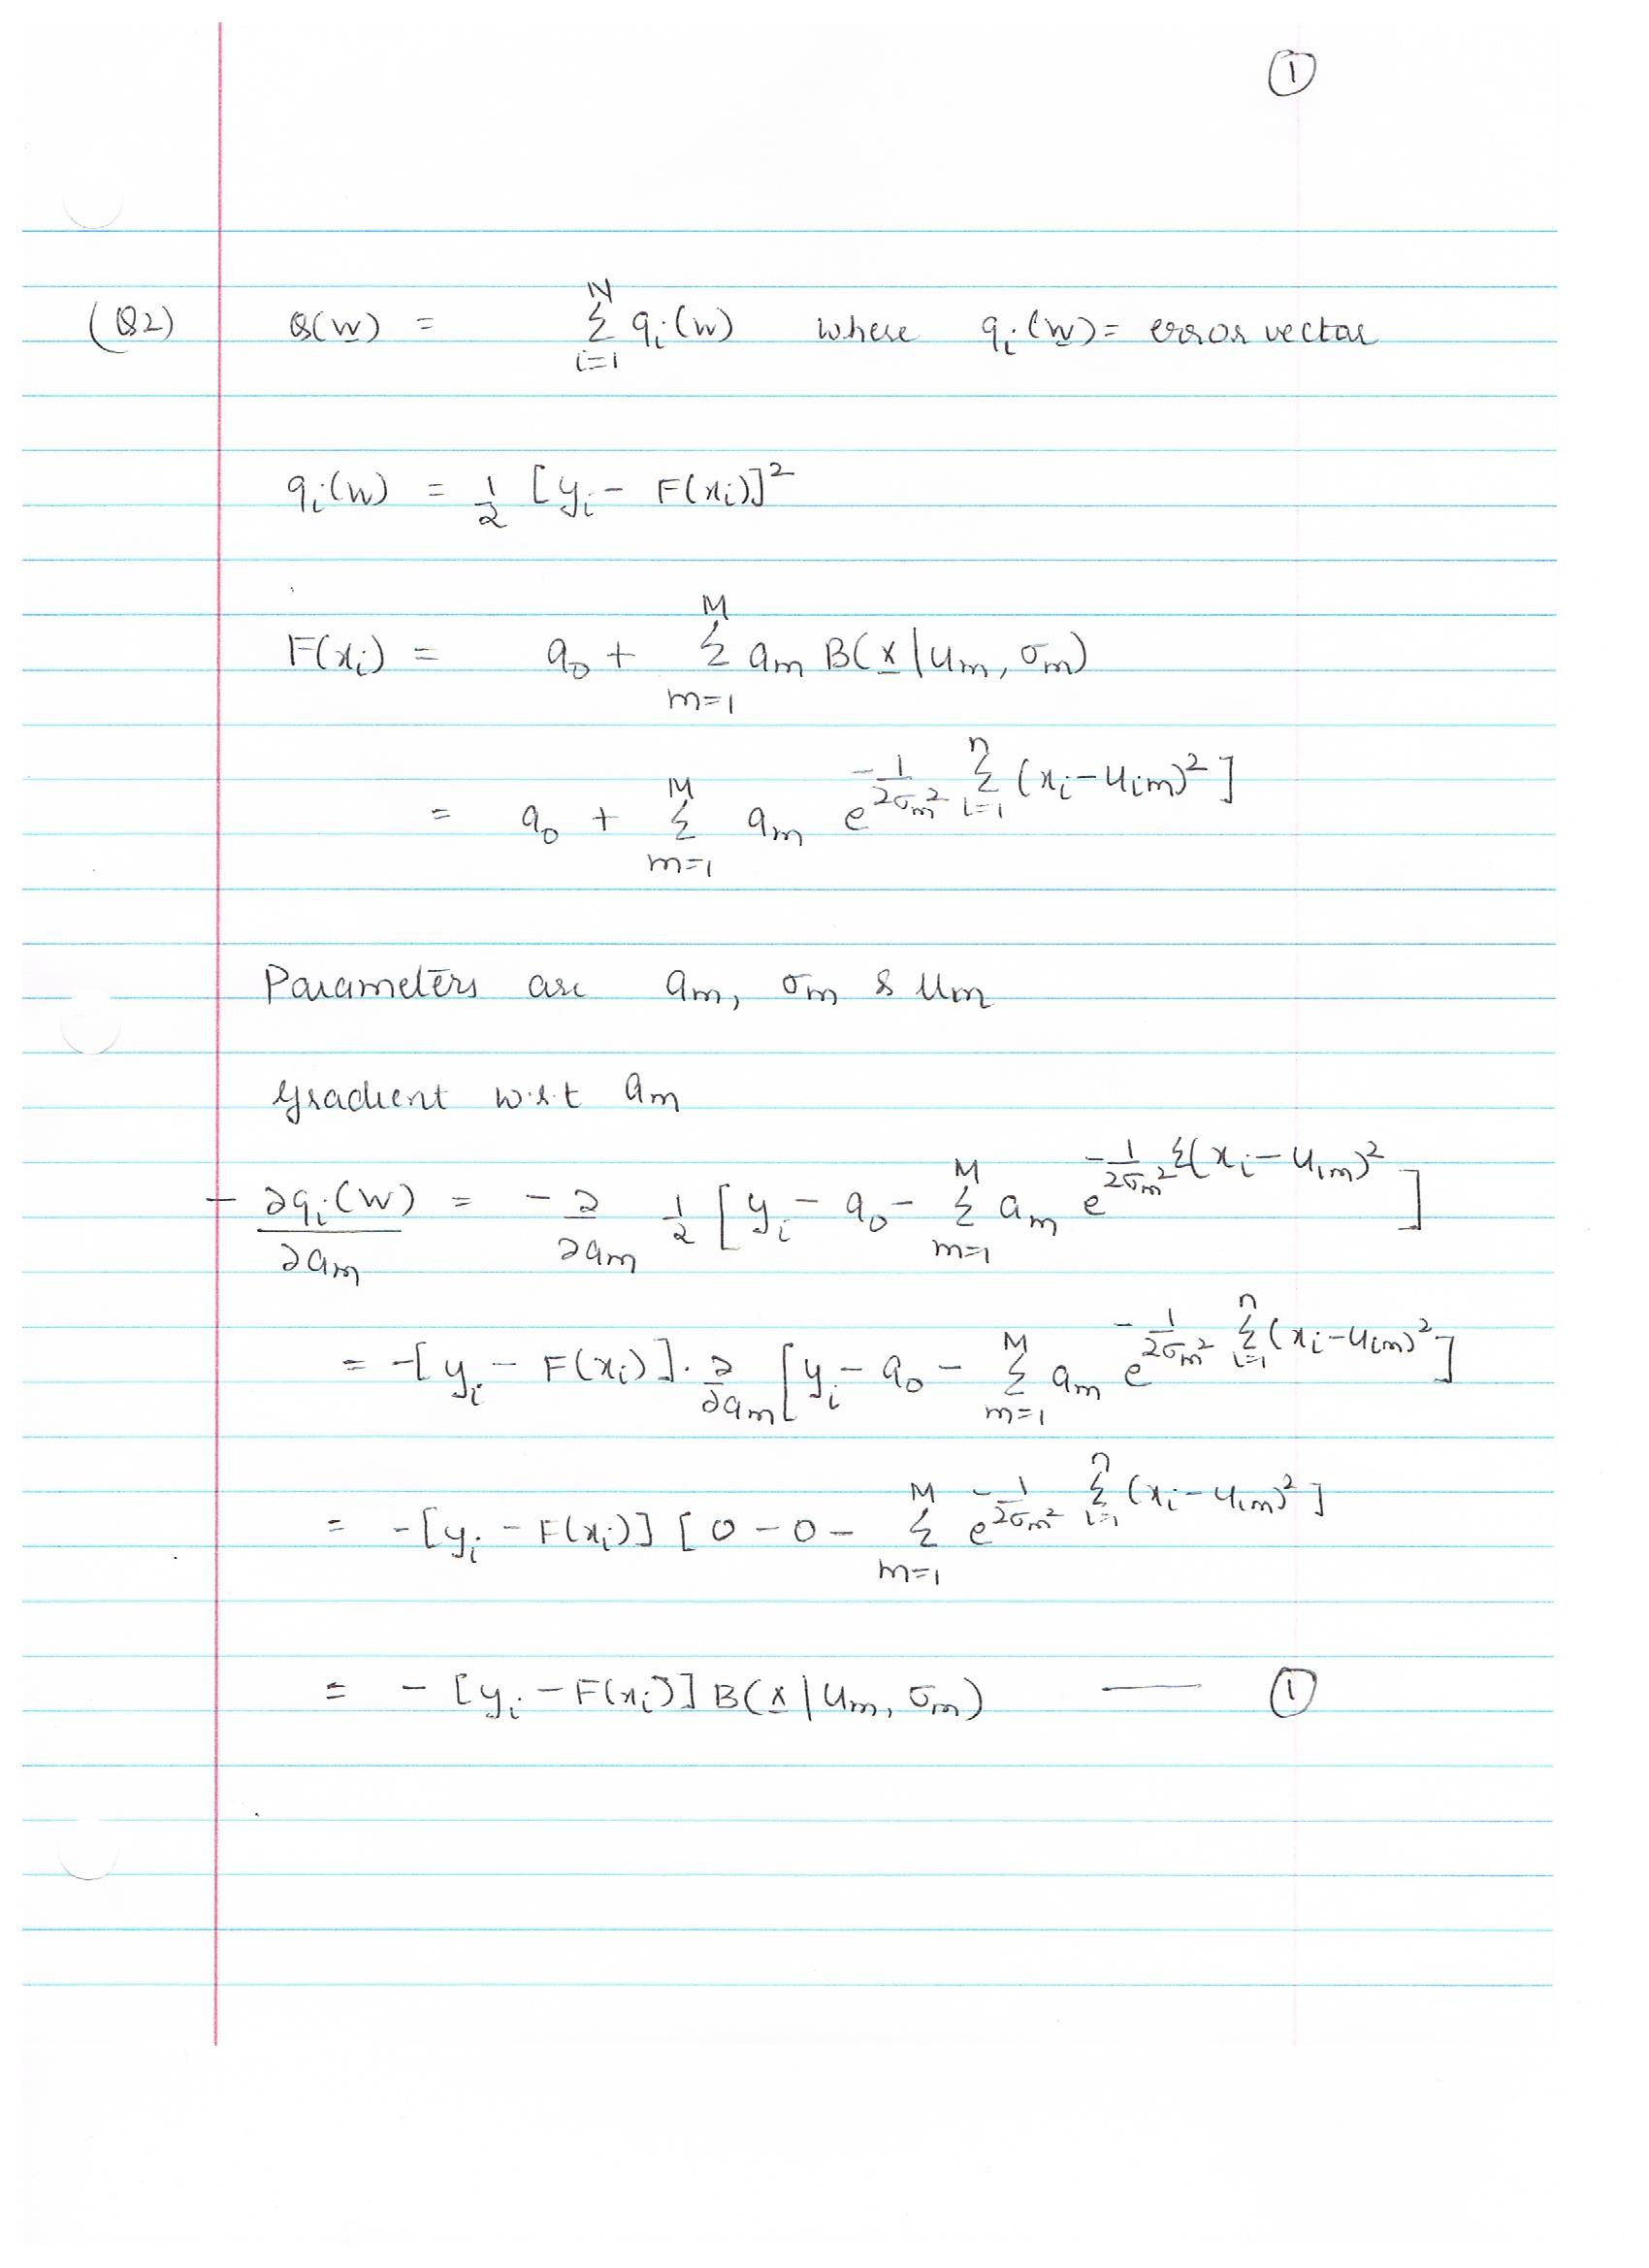 ①
(Q2) Q(w) = Σ_{i=1}^{N} q_i(w) where q_i(w) = error vector
q_i(w) = 1/2 [y_i - F(x_i)]^2
F(x_i) = a_0 + Σ_{m=1}^{M} a_m B(x|u_m, σ_m)
= a_0 + Σ_{m=1}^{M} a_m e^{-1/(2σ_m^2) Σ_{i=1}^{n} (x_i - u_{im})^2]}
Parameters are a_m, σ_m & u_m
gradient w.r.t a_m
- ∂q_i(w)/∂a_m = -∂/∂a_m 1/2 [y_i - a_0 - Σ_{m=1}^{M} a_m e^{-1/(2σ_m^2) Σ(x_i - u_{im})^2}]
= -[y_i - F(x_i)] . ∂/∂a_m [y_i - a_0 - Σ_{m=1}^{M} a_m e^{-1/(2σ_m^2) Σ_{i=1}^{n} (x_i - u_{im})^2}]
= -[y_i - F(x_i)] [0 - 0 - Σ_{m=1}^{M} e^{-1/(2σ_m^2) Σ_{i=1}^{n} (x_i - u_{im})^2}]
= - [y_i - F(x_i)] B(x|u_m, σ_m) — ①